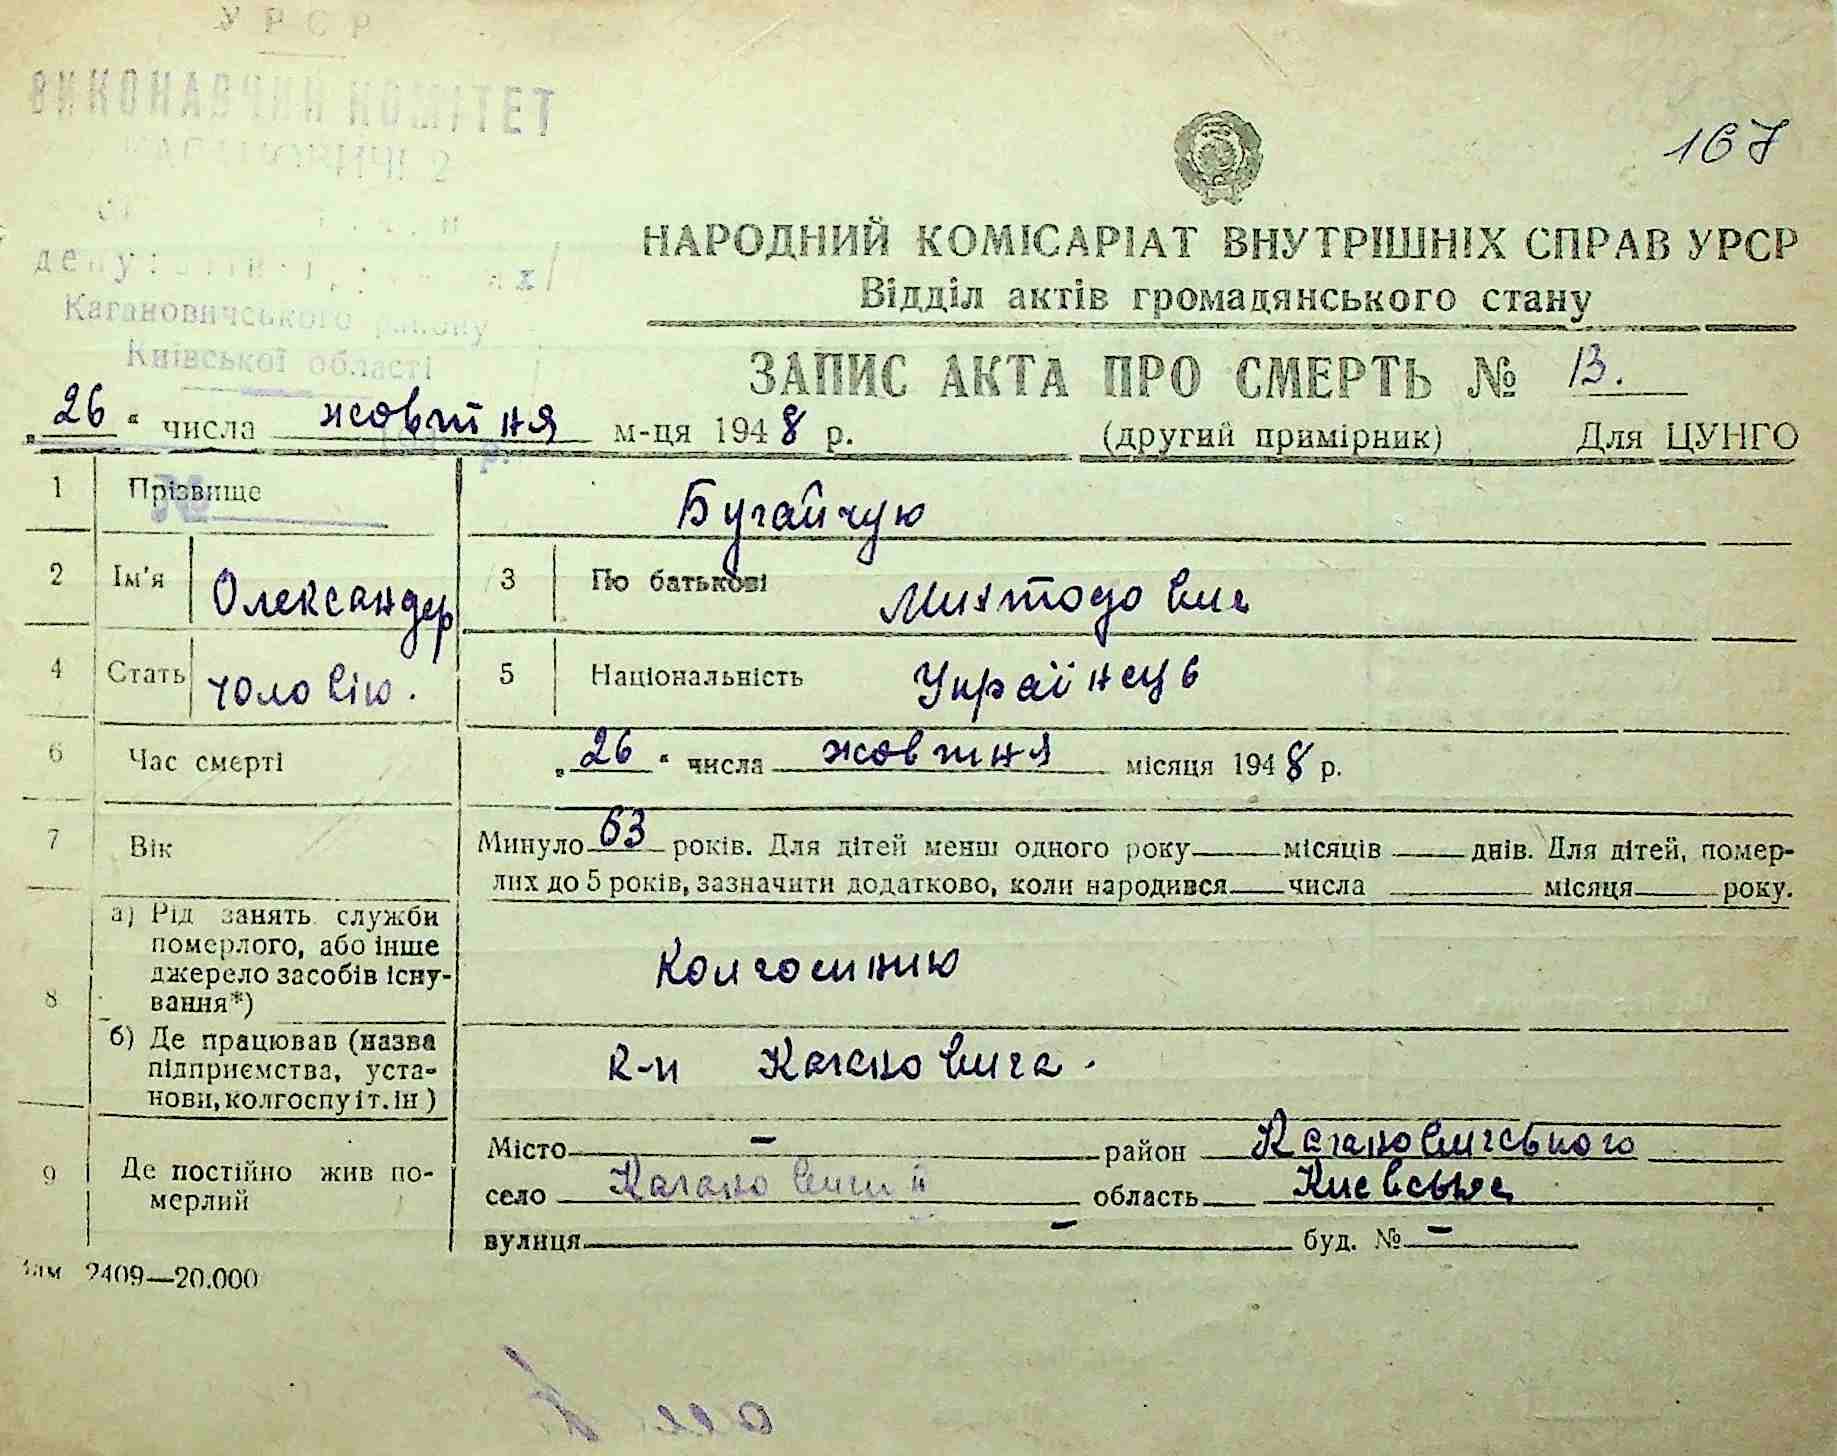 УРСР
ВИКОНАВЧИЙ КОМІТЕТ
КАГАНОВИЧІ 2
Кагановичського району
Київської області
167
НАРОДНИЙ КОМІСАРІАТ ВНУТРІШНІХ СПРАВ УРСР
Відділ актів громадянського стану
ЗАПИС АКТА ПРО СМЕРТЬ № 13.
„26“ числа жовтня м-ця 1948 р. (другий примірник) Для ЦУНГО
1 Прізвище Бугайчук
№
2 Ім'я Олександер 3 По батькові
4 Стать чоловік. 5 Національність Українець
6 Час смерті „26“ числа жовтня місяця 1948 р.
7 Вік Минуло 63 років. Для дітей менш одного року місяців днів. Для дітей, помер-
лих до 5 років, зазначити додатково, коли народився числа місяця року.
8 а) Рід занять служби
померлого, або інше
джерело засобів існу-
вання*) Колгоспник
б) Де працював (назва
підприємства, уста-
нови, колгоспу і т. ін) к-п Кагановича.
9 Де постійно жив по-
мерлий
Місто — район Кагановичського
село Кагановичі II область Киевська
вулиця — буд. № —
Зам 2409—20.000